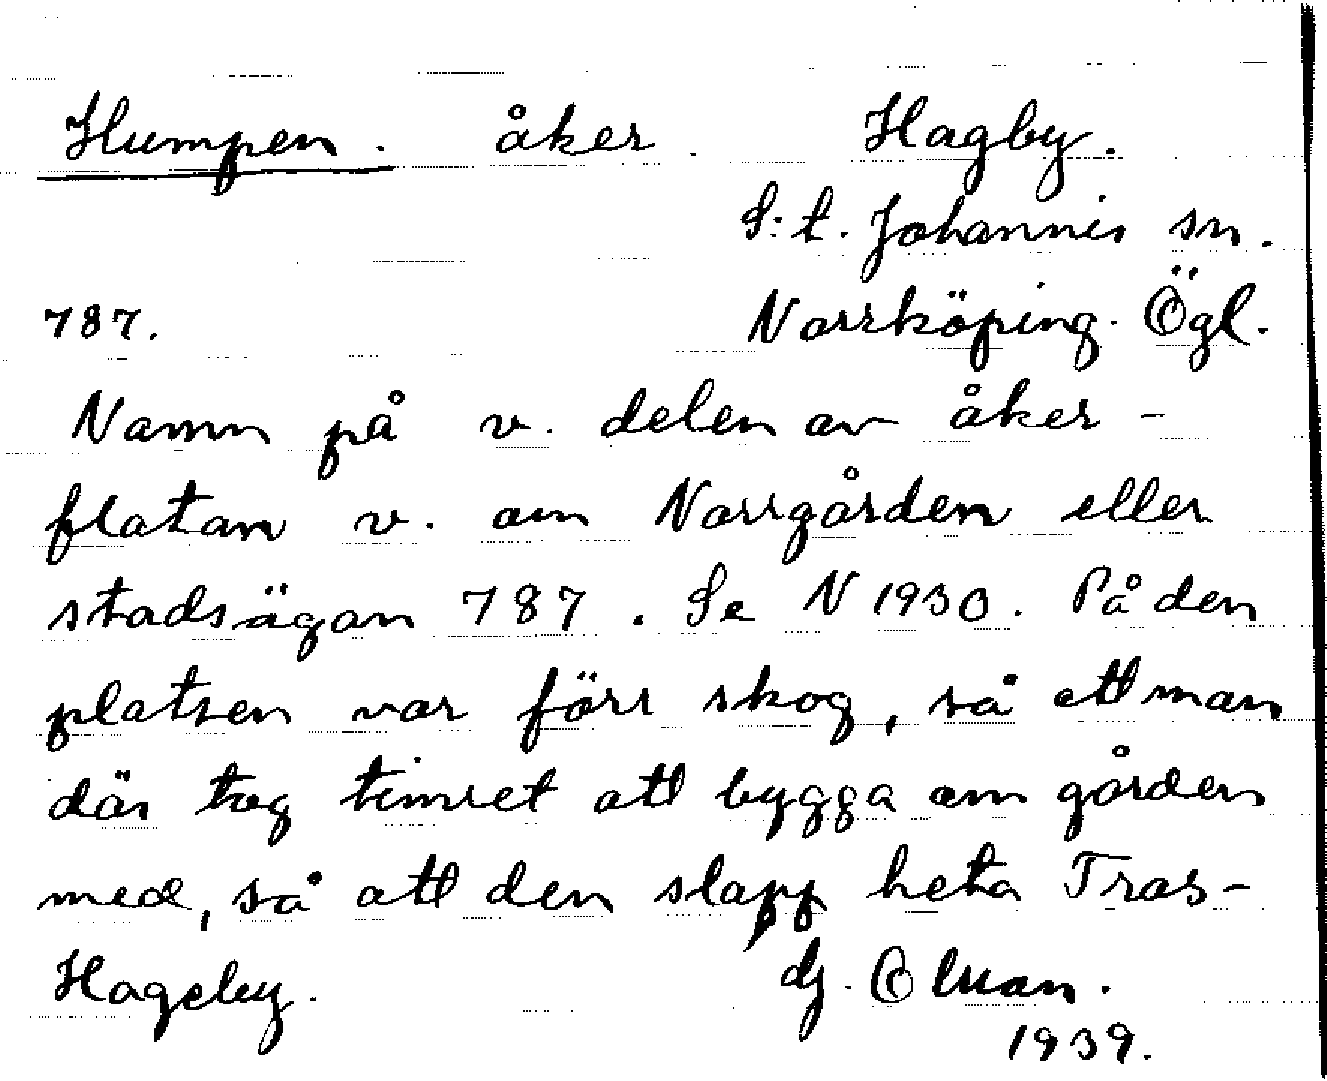 Humpen. åker. Hagby.
S:t. Johannis sn.
787. Norrköping. Ögl.
Namn på v. delen av åker-
flatan v. om Norrgården eller
stadsägan 787. Se N 1930. På den
platsen var förr skog, så att man
där tog timret att bygga om gården
med, så att den slapp heta Tras-
Hageby.
1939.